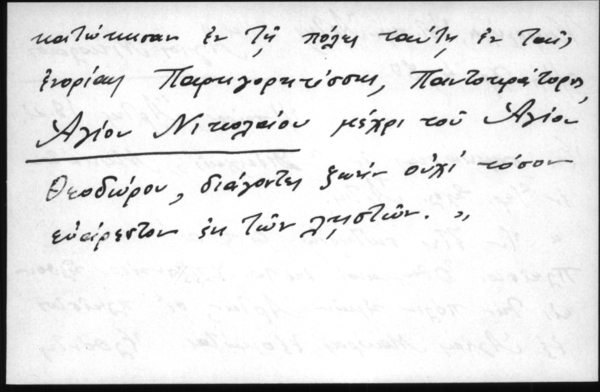 κατώκησαν ἐν τῇ πόλει ταύτῃ ἐν ταῖς
ἐνορίαις Παρηγορητίσσης, Παντοκράτορος,
Ἁγίου Νικολαίου μέχρι τοῦ Ἁγίου
Θεοδώρου, διάγοντες ζωὴν οὐχὶ τόσον
εὐάρεστον ἐκ τῶν λῃστῶν. »